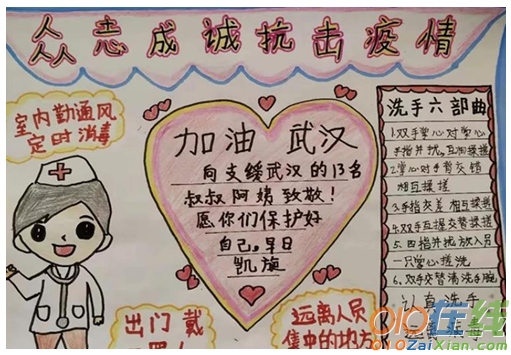 众志成诚抗击疫情
室内勤通风
定时消毒
加油 武汉
向支缓武汉的13名
叔叔阿姨致敬!
愿你们保护好
自己,早日
凯旋
洗手六部曲
1.双手掌心对掌心
手指并拢,互相揉搓
2.掌心对手背交错
相互揉搓
3.手指交差相互揉搓
4.双手互握交替揉搓
5.四指并拢放入另
一只掌心搓洗
6.双手交替清洗手腕
认真洗手
远离病毒
出门戴
远离人员
集中的地方
010在线
010ZaiXian.Com